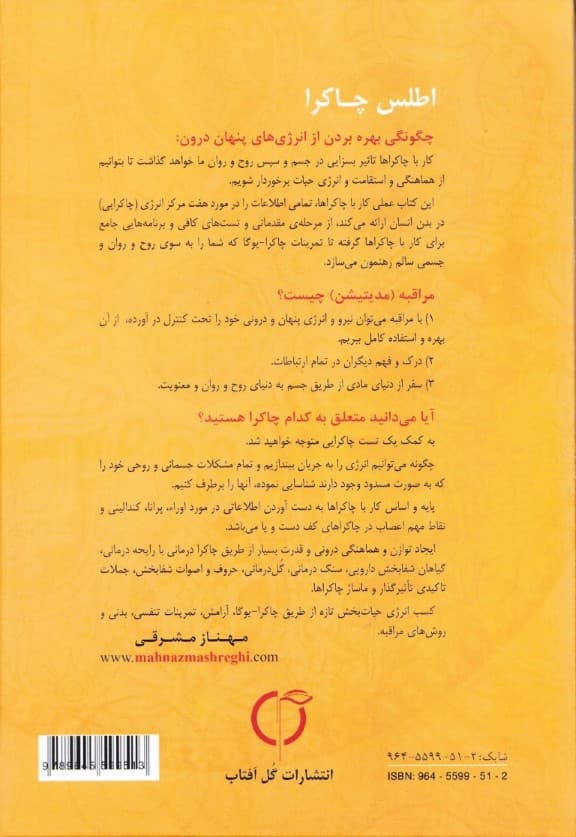 اطلس چـاکرا
چگونگی بهره بردن از انرژی‌های پنهان درون:
کار با چاکراها تاثیر بسزایی در جسم و سپس روح و روان ما خواهد گذاشت تا بتوانیم
از هماهنگی و استقامت و انرژی حیات برخوردار شویم.
این کتاب عملی کار با چاکراها، تمامی اطلاعات را در مورد هفت مرکز انرژی (چاکرایی)
در بدن انسان ارائه می‌کند، از مرحله‌ی مقدماتی و تست‌های کافی و برنامه‌هایی جامع
برای کار با چاکراها گرفته تا تمرینات چاکرا-یوگا که شما را به سوی روح و روان و
جسمی سالم رهنمون می‌سازد.
مراقبه (مدیتیشن) چیست؟
۱) با مراقبه می‌توان نیرو و انرژی پنهان و درونی خود را تحت کنترل در آورده، از آن
بهره و استفاده کامل ببریم.
۲) درک و فهم دیگران در تمام ارتباطات.
۳) سفر از دنیای مادی از طریق جسم به دنیای روح و روان و معنویت.
آیا می‌دانید متعلق به کدام چاکرا هستید؟
به کمک یک تست چاکرایی متوجه خواهید شد.
چگونه می‌توانیم انرژی را به جریان بیندازیم و تمام مشکلات جسمانی و روحی خود را
که به صورت مسدود وجود دارند شناسایی نموده، آنها را برطرف کنیم.
پایه و اساس کار با چاکراها به دست آوردن اطلاعاتی در مورد اوراء، پرانا، کندالینی و
نقاط مهم اعصاب در چاکراهای کف دست و پا می‌باشد.
ایجاد توازن و هماهنگی درونی و قدرت بسیار از طریق چاکرا درمانی با رایحه درمانی،
گیاهان شفابخش دارویی، سنگ درمانی، گُل‌درمانی، حروف و اصوات شفابخش، جملات
تاکیدی تأثیرگذار و ماساژ چاکراها.
کسب انرژی حیات‌بخش تازه از طریق چاکرا-یوگا، آرامش، تمرینات تنفسی، بدنی و
روش‌های مراقبه.
مـهنـاز مشـرقـی
www.mahnazmashreghi.com
انتشارات گُل آفتاب
شابک: ۲-۵۱-۵۵۹۹-۹۶۴
ISBN: 964 - 5599 - 51 - 2